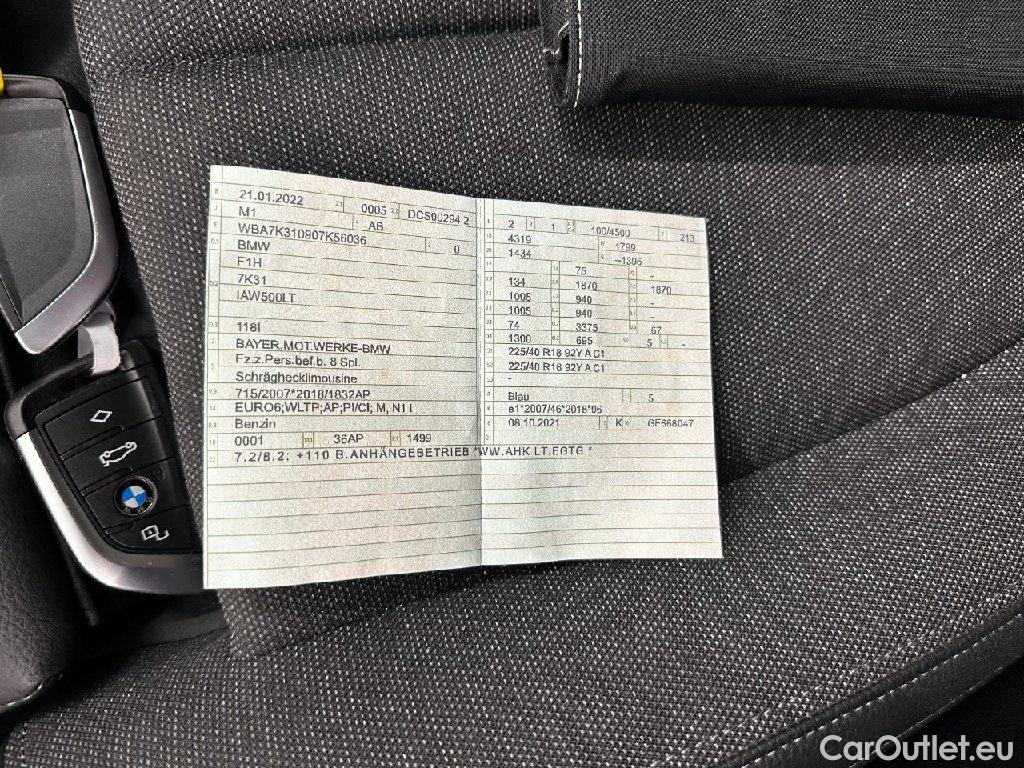 21.01.2022 0005 DCS00294 2
M1 AB
WBA7K310907K56036 0
BMW
F1H
7K31
IAW500LT
118I
BAYER.MOT.WERKE-BMW
Fz.z.Pers.bef.b. 8 Spl.
Schräghecklimousine
715/2007*2018/1832AP
EURO6;WLTP;AP;PI/CI; M, N1 I
Benzin
0001 36AP 1499
7.2/8.2: +110 B.ANHÄNGEBETRIEB *WW.AHK LT.EGTG *
2 1 100/4500 213
4319 1799
1434 –1395
75 -
134 1870 1870
1005 940 -
1005 940 -
74 3375 67
1300 695 5 -
225/40 R18 92Y A C1
225/40 R18 92Y A C1
-
Blau 5
e1*2007/46*2018*06
08.10.2021 K GF668047
CarOutlet.eu